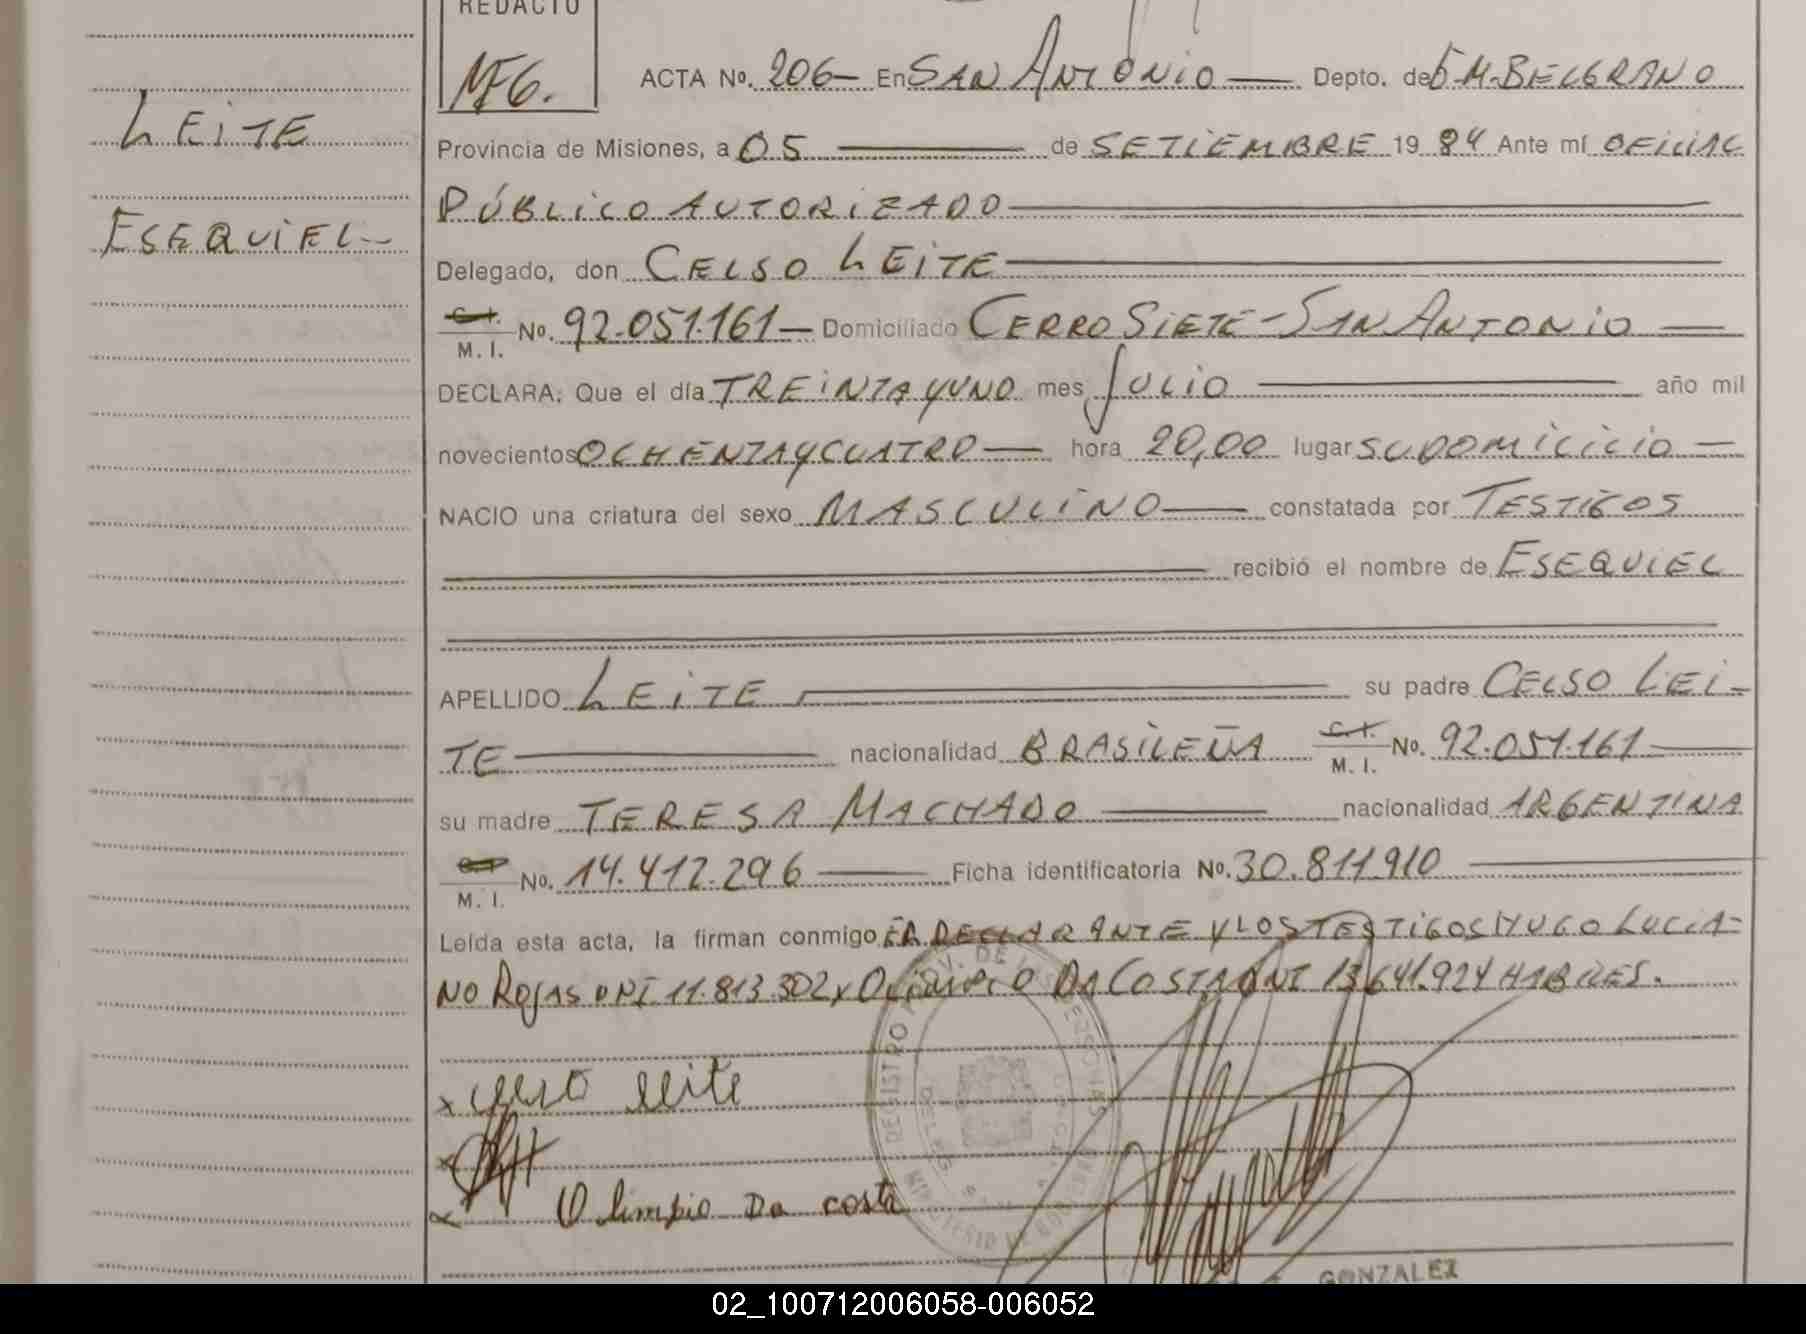 REDACTO
ACTA Nº. 206- En SAN ANTONIO Depto. de G.M. BELGRANO
LEITE
Provincia de Misiones, a 05 de SETIEMBRE 19 84 Ante mí OFICIAL
PÚBLICO AUTORIZADO
ESEQUIEL-
Delegado, don CELSO LEITE
C.I. M. I. Nº. 92.051.161 - Domiciliado CERRO SIETE - SAN ANTONIO
DECLARA: Que el día TREINTA Y UNO mes JULIO año mil
novecientos OCHENTA Y CUATRO hora 20,00 lugar SU DOMICILIO
NACIO una criatura del sexo MASCULINO constatada por TESTIGOS
recibió el nombre de ESEQUIEL
APELLIDO LEITE su padre CELSO LEI-
TE nacionalidad BRASILEÑA C.I. M. I. Nº. 92.051.161
su madre TERESA MACHADO nacionalidad ARGENTINA
M. I. Nº. 14.412.296 Ficha identificatoria Nº. 30.811.910
Leída esta acta, la firman conmigo DECLARANTE Y LOS TESTIGOS HUGO LUCIA-
NO ROJAS DNI 11.813.302 y OLIMPIO DA COSTA DNI 13.641.924 HABILES.
x Celso Leite
x
x Olimpio Da costa
GONZALEZ
02_100712006058-006052